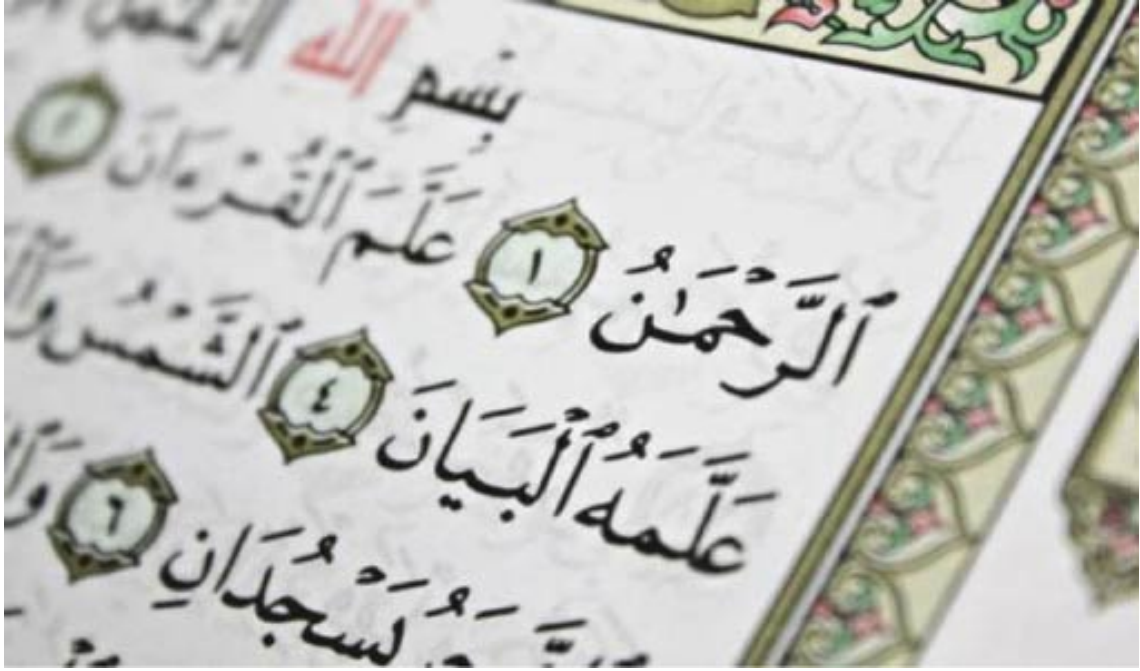 بِسْمِ اللَّهِ الرَّحْمَٰنِ
ٱلرَّحْمَٰنُ ١ عَلَّمَ ٱلْقُرْءَانَ ٢
عَلَّمَهُ ٱلْبَيَانَ ٤ ٱلشَّمْسُ
يَسْجُدَانِ ٦